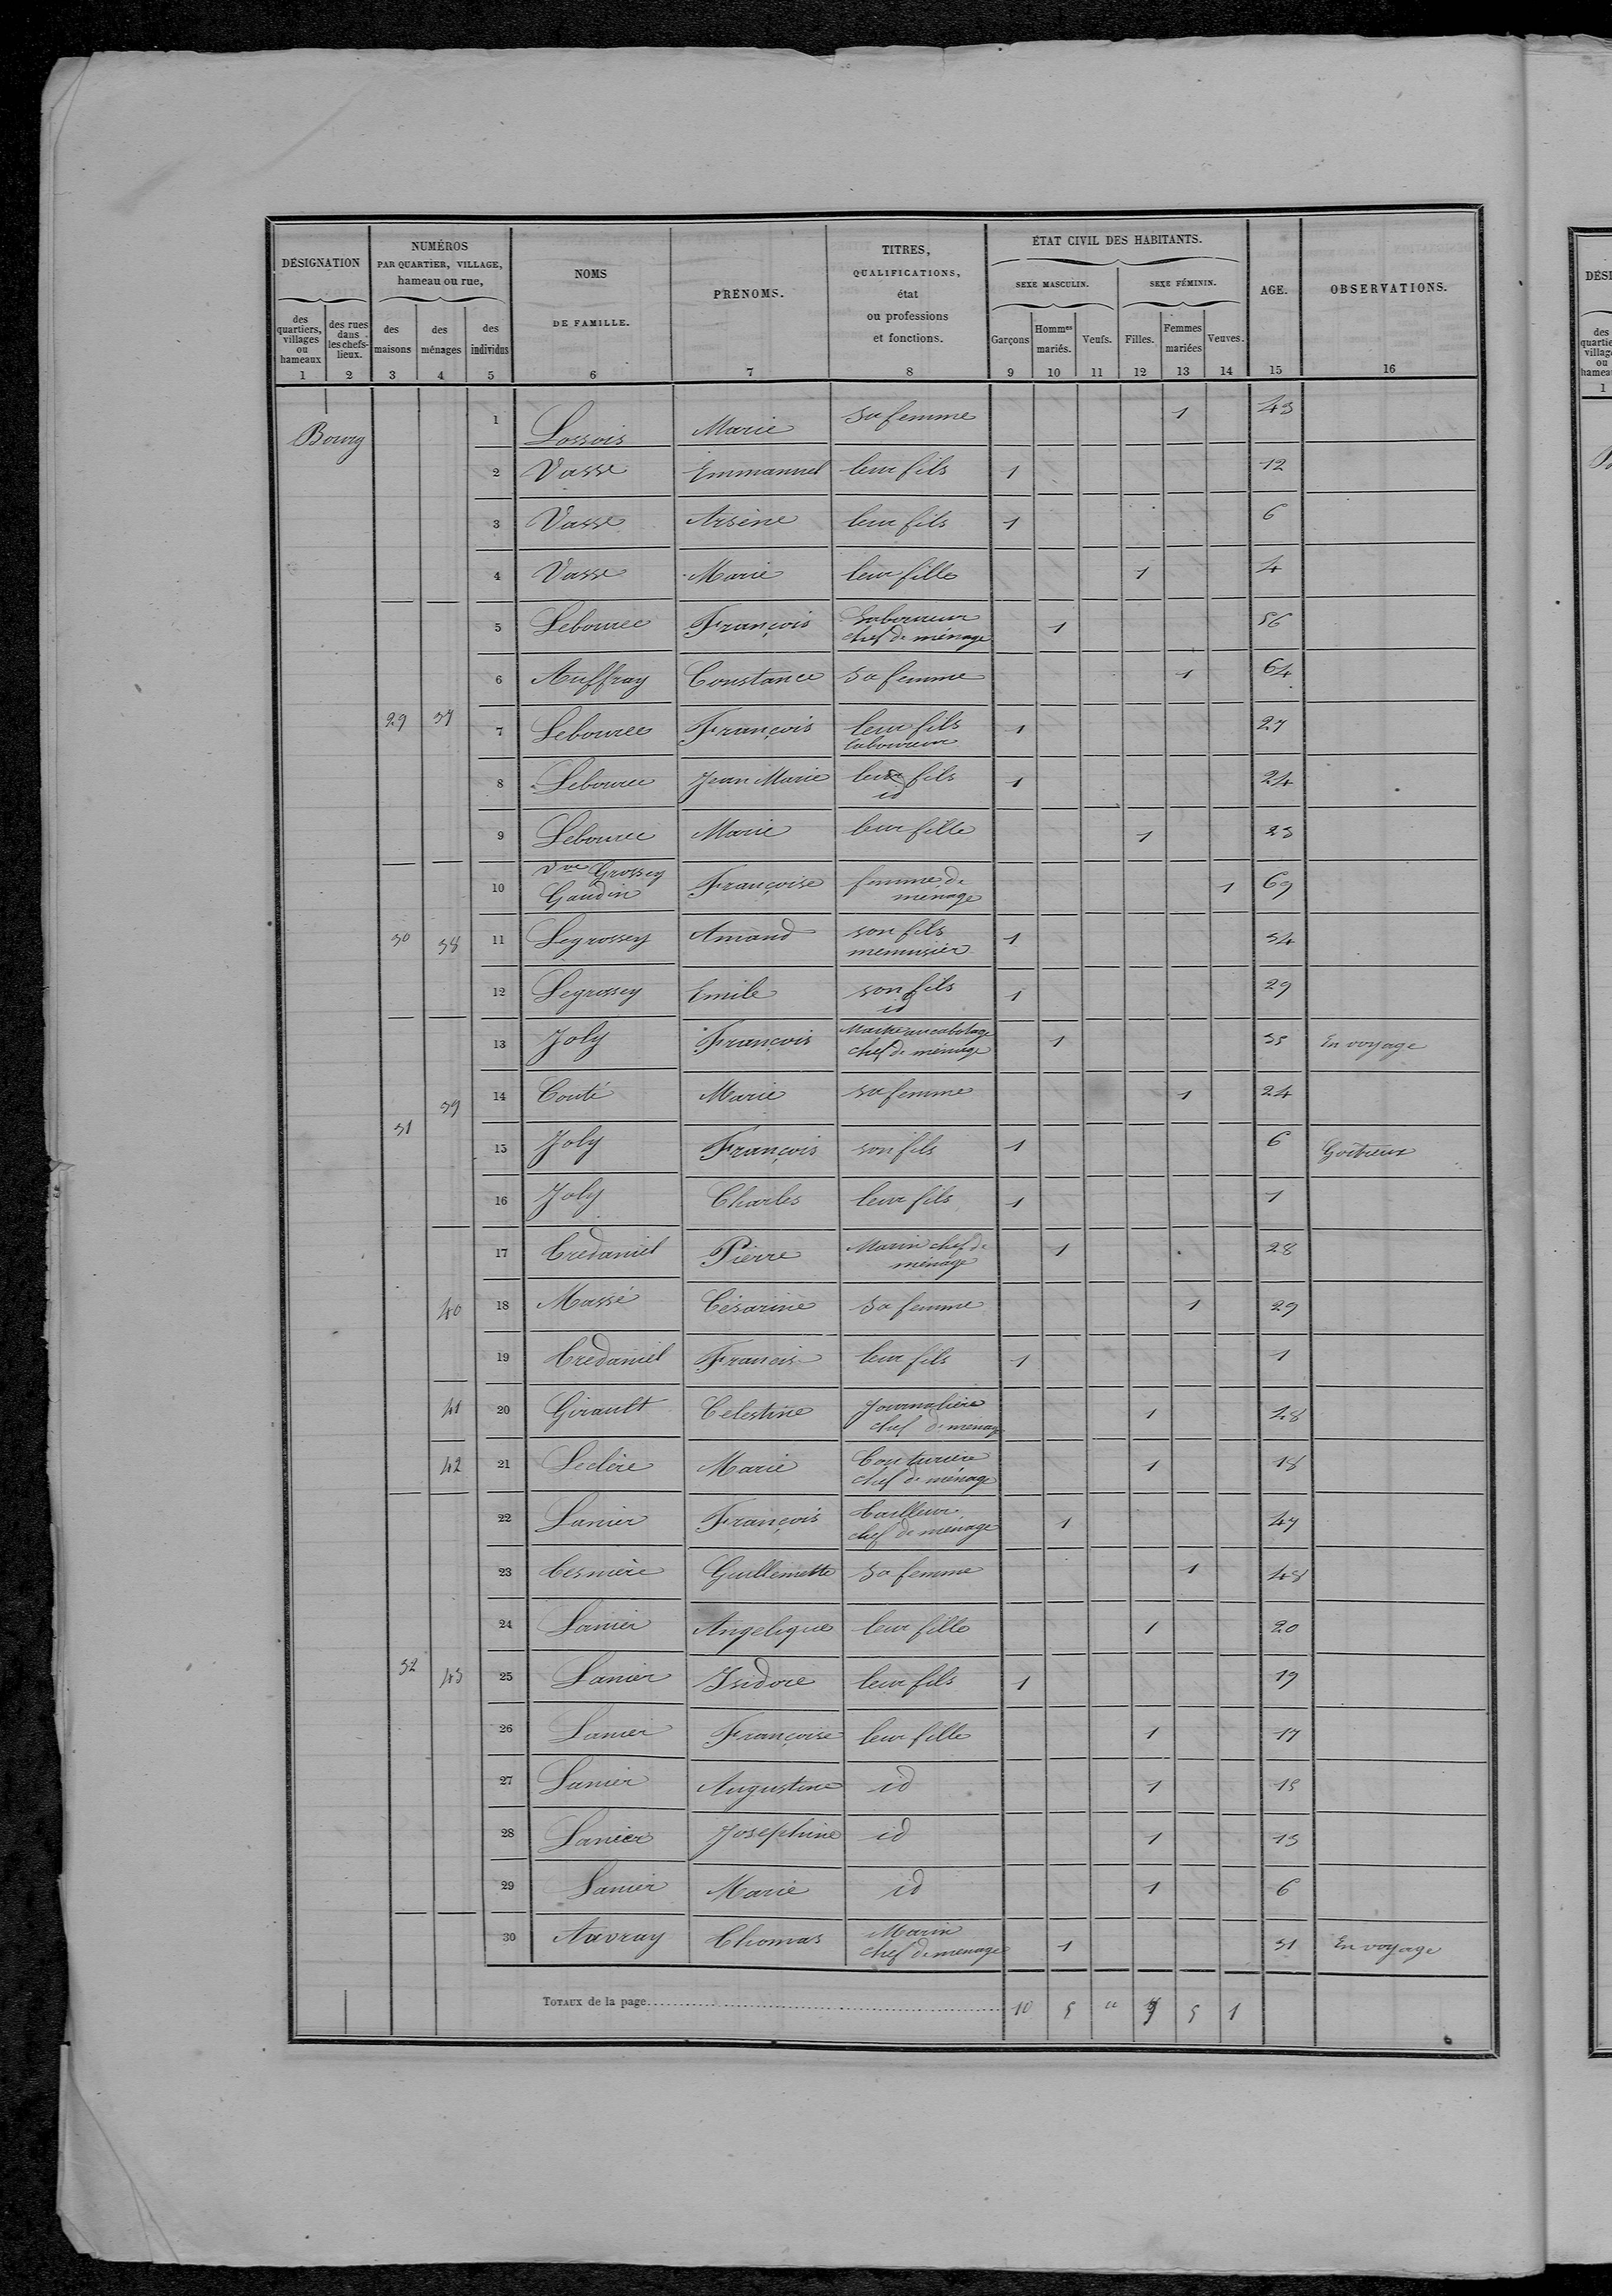 DÉSIGNATION
des quartiers, villages ou hameaux
des rues dans les chefs-lieux.
NUMÉROS
PAR QUARTIER, VILLAGE,
hameau ou rue,
des maisons
des ménages
des individus
NOMS
DE FAMILLE.
PRÉNOMS.
TITRES,
QUALIFICATIONS,
état
ou professions
et fonctions.
ÉTAT CIVIL DES HABITANTS.
SEXE MASCULIN.
SEXE FÉMININ.
Garçons
Hommes mariés.
Veufs.
Filles.
Femmes mariées
Veuves.
AGE.
OBSERVATIONS.
1 2 3 4 5 6 7 8 9 10 11 12 13 14 15 16
Bourg
1 Lossois Marie sa femme 1 43
2 Vasse Emmanuel leur fils 1 12
3 Vasse Arsène leur fils 1 6
4 Vasse Marie leur fille 1 4
5 Lebourec François Laboureur chef de ménage 1 56
6 Auffray Constance sa femme 1 64
29 37 7 Lebourec François leur fils laboureur 1 27
8 Lebourec Jean Marie leur fils id 1 24
9 Lebourec Marie leur fille 1 23
10 Vve Grossey Gaudin Françoise femme de ménage 1 69
30 38 11 Legrossey Amand son fils menuisier 1 34
12 Legrossey Emile son fils id 1 29
13 Joly François Maitre au cabotage chef de ménage 1 35 En voyage
39 14 Couté Marie sa femme 1 24
31 15 Joly François son fils 1 6 Goitreux
16 Joly Charles leur fils 1 1
17 Tredaniel Pierre Marin chef de ménage 1 28
40 18 Massé Césarine sa femme 1 29
19 Tredaniel Francis leur fils 1 1
41 20 Girault Celestine Journalière chef de menage 1 48
42 21 Leclère Marie Couturière chef de ménage 1 18
22 Lanier François tailleur chef de ménage 1 47
23 Cesnière Guillemette sa femme 1 48
24 Lanier Angelique leur fille 1 20
32 43 25 Lanier Isidore leur fils 1 19
26 Lanier Françoise leur fille 1 17
27 Lanier Augustine id 1 15
28 Lanier Josephine id 1 13
29 Lanier Marie id 1 6
30 Auvray Thomas Marin chef de menage 1 31 En voyage
TOTAUX de la page 10 5 " 9 5 1